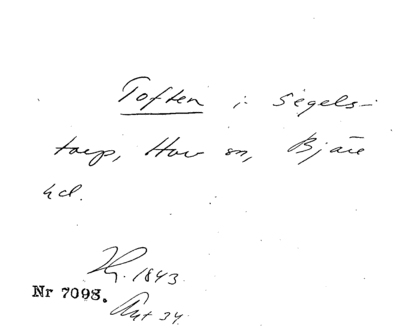 Toften i Segels-
torp, Hov sn, Bjäre
hd.
1843
Nr 7098.
Akt 34